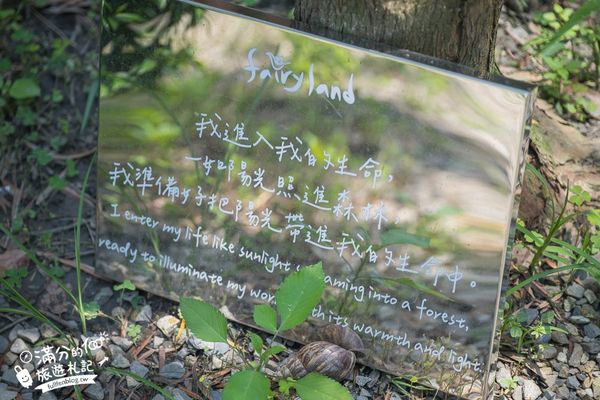 fairyland
我進入我的生命,
一如陽光照進森林。
我準備好把陽光帶進我的生命中。
I enter my life like sunlight streaming into a forest,
ready to illuminate my world with its warmth and light.
滿分的
旅遊札記
fullfenblog.tw